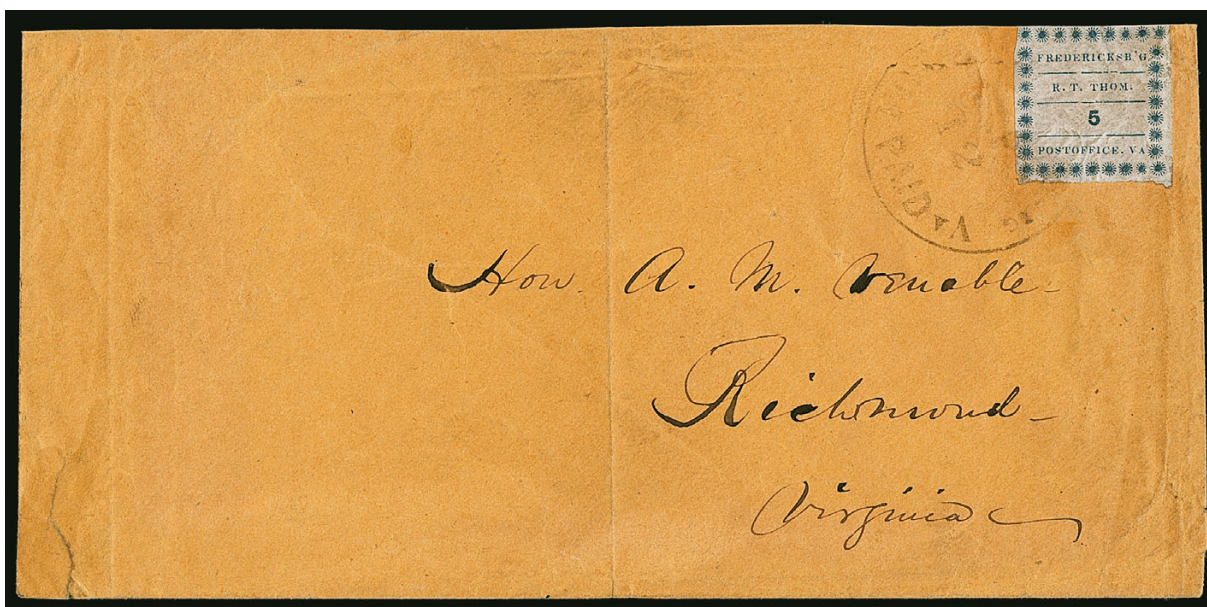 FREDERICKSB'G
R. T. THOM.
5
POSTOFFICE, VA
PAID
2
VA
Hon. A. M. Venable
Richmond
Virginia